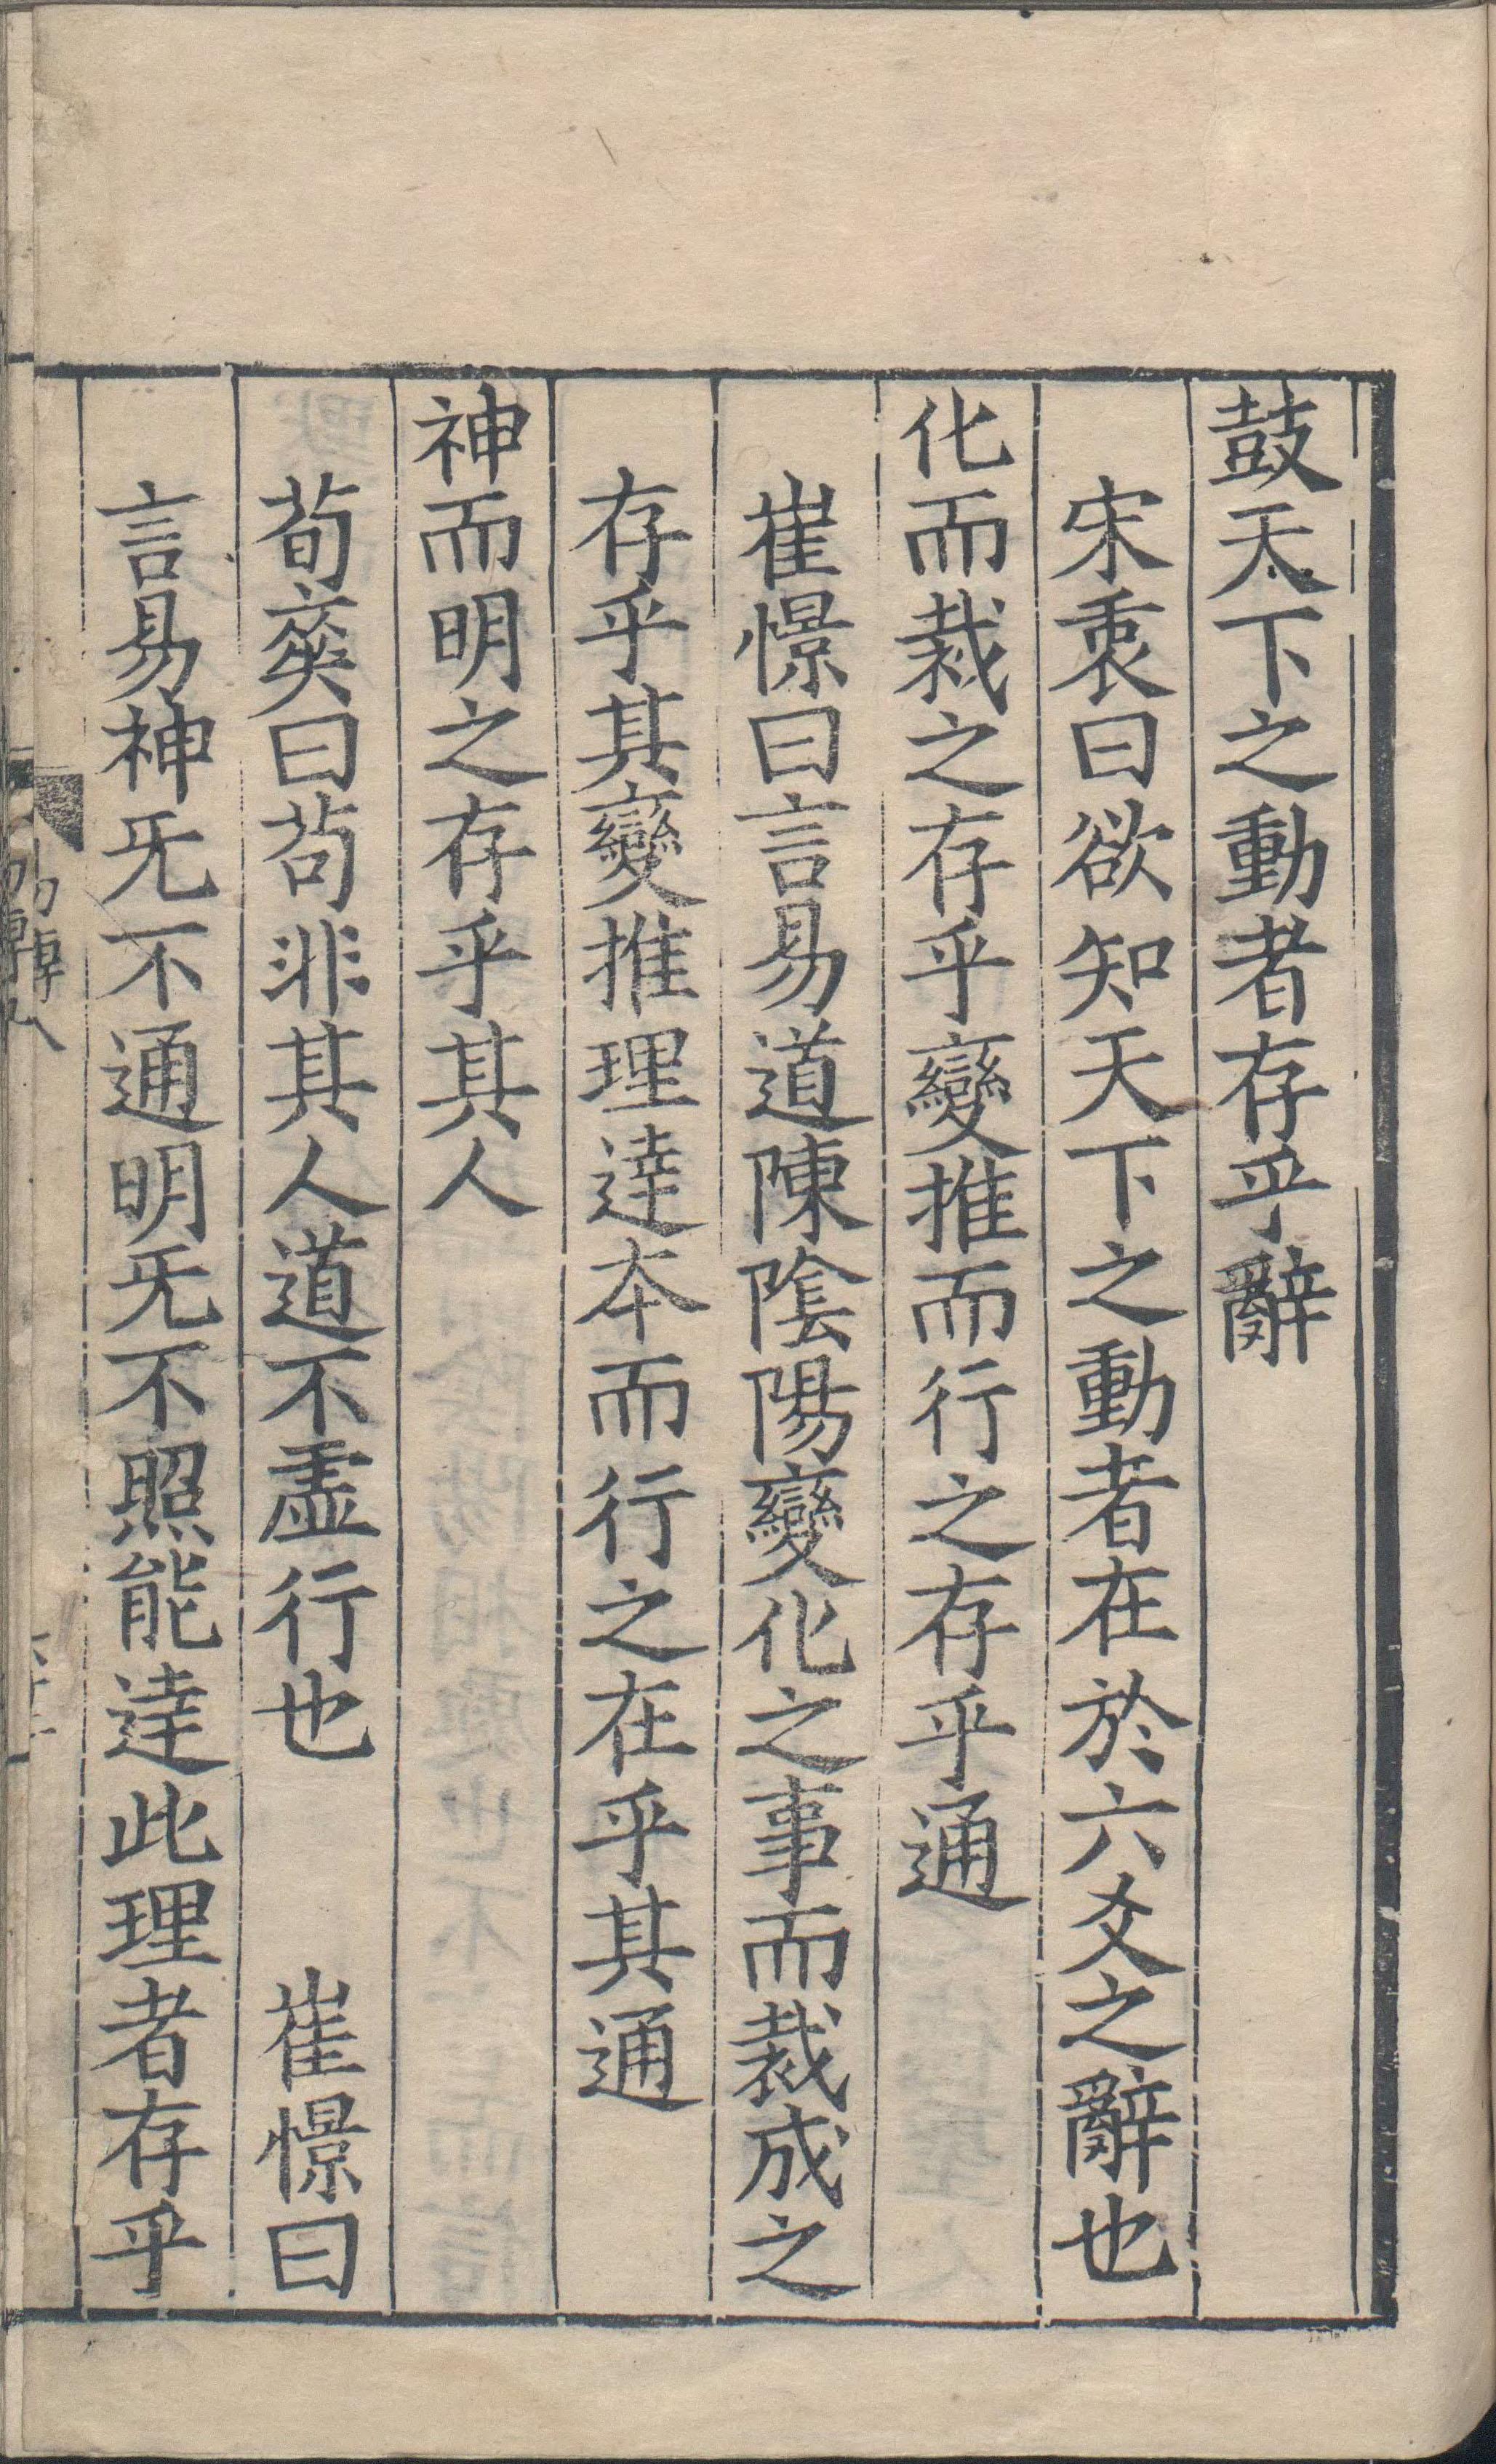 鼓天下之動者存乎辭
宋衷曰欲知天下之動者在於六爻之辭也
化而裁之存乎變推而行之存乎通
崔憬曰言易道陳陰陽變化之事而裁成之
存乎其變推理達本而行之在乎其通
神而明之存乎其人
荀爽曰苟非其人道不虛行也　崔憬曰
言易神无不通明无不照能達此理者存乎